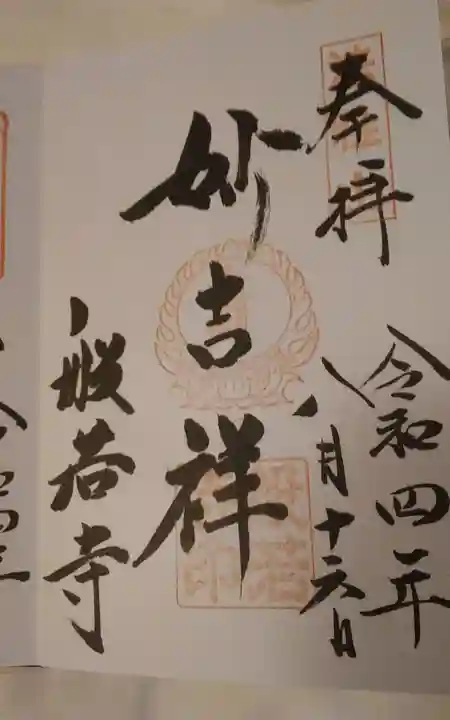 奉拝
令和四年
八月十六日
妙吉祥
般若寺